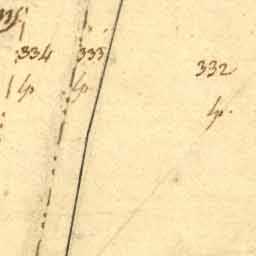 334 333 332
lp lp lp.